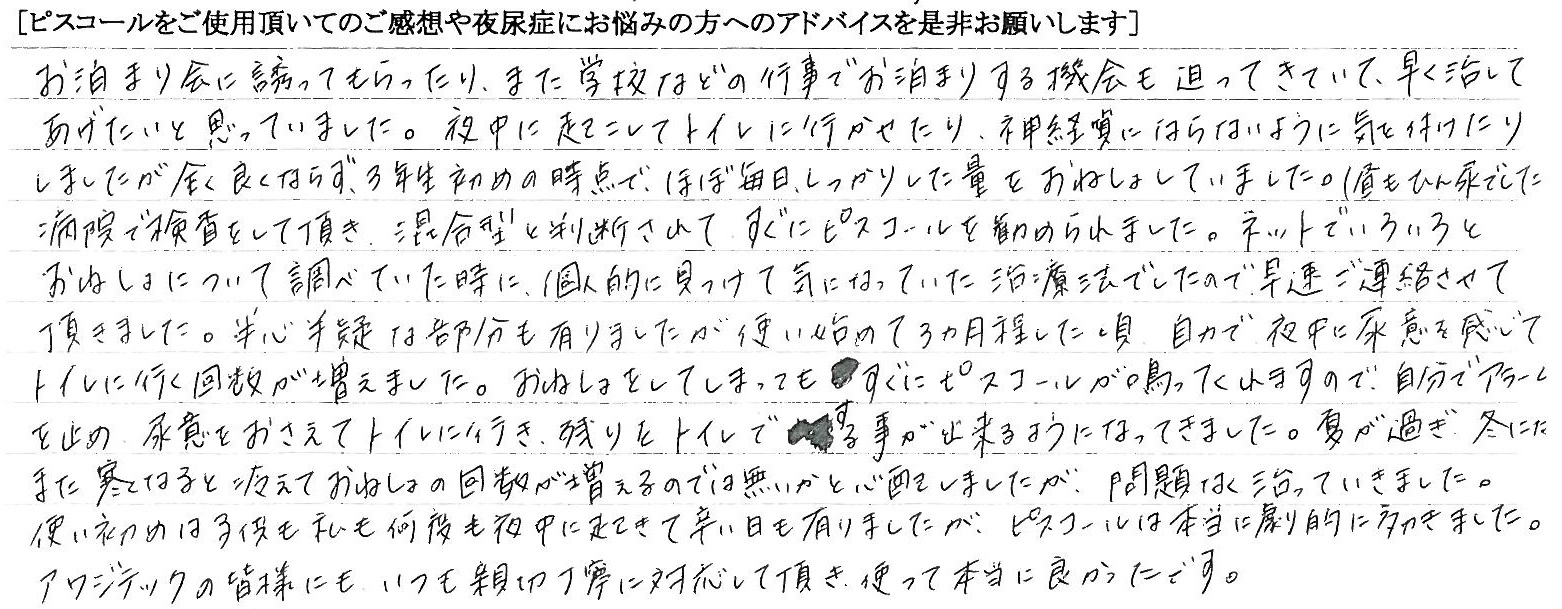 [ピスコールをご使用頂いてのご感想や夜尿症にお悩みの方へのアドバイスを是非お願いします]
お泊まり会に誘ってもらったり、また学校などの行事でお泊まりする機会も迫ってきていて、早く治して
あげたいと思っていました。夜中に起こしてトイレに行かせたり、神経質にならないように気を付けたり
しましたが全く良くならず、3年生初めの時点で、ほぼ毎日、しっかりした量をおねしょしていました。(昼もひん尿でした
病院で検査をして頂き、混合型と判断されて、すぐにピスコールを勧められました。ネットでいろいろと
おねしょについて調べていた時に、個人的に見つけて気になっていた治療法でしたので、早速ご連絡させて
頂きました。半心半疑な部分も有りましたが使い始めて3ヵ月程した頃、自力で夜中に尿意を感じて
トイレに行く回数が増えました。おねしょをしてしまってもすぐにピスコールが鳴ってくれますので、自分でアラーム
を止め、尿意をおさえてトイレに行き、残りをトイレでする事が出来るようになってきました。夏が過ぎ、冬にな
また寒くなると冷えておねしょの回数が増えるのでは無いかと心配をしましたが、問題なく治っていきました。
使い初めは子供も私も何度も夜中に起きて辛い日も有りましたが、ピスコールは本当に劇的に効きました。
アワジテックの皆様にも、いつも親切丁寧に対応して頂き、使って本当に良かったです。